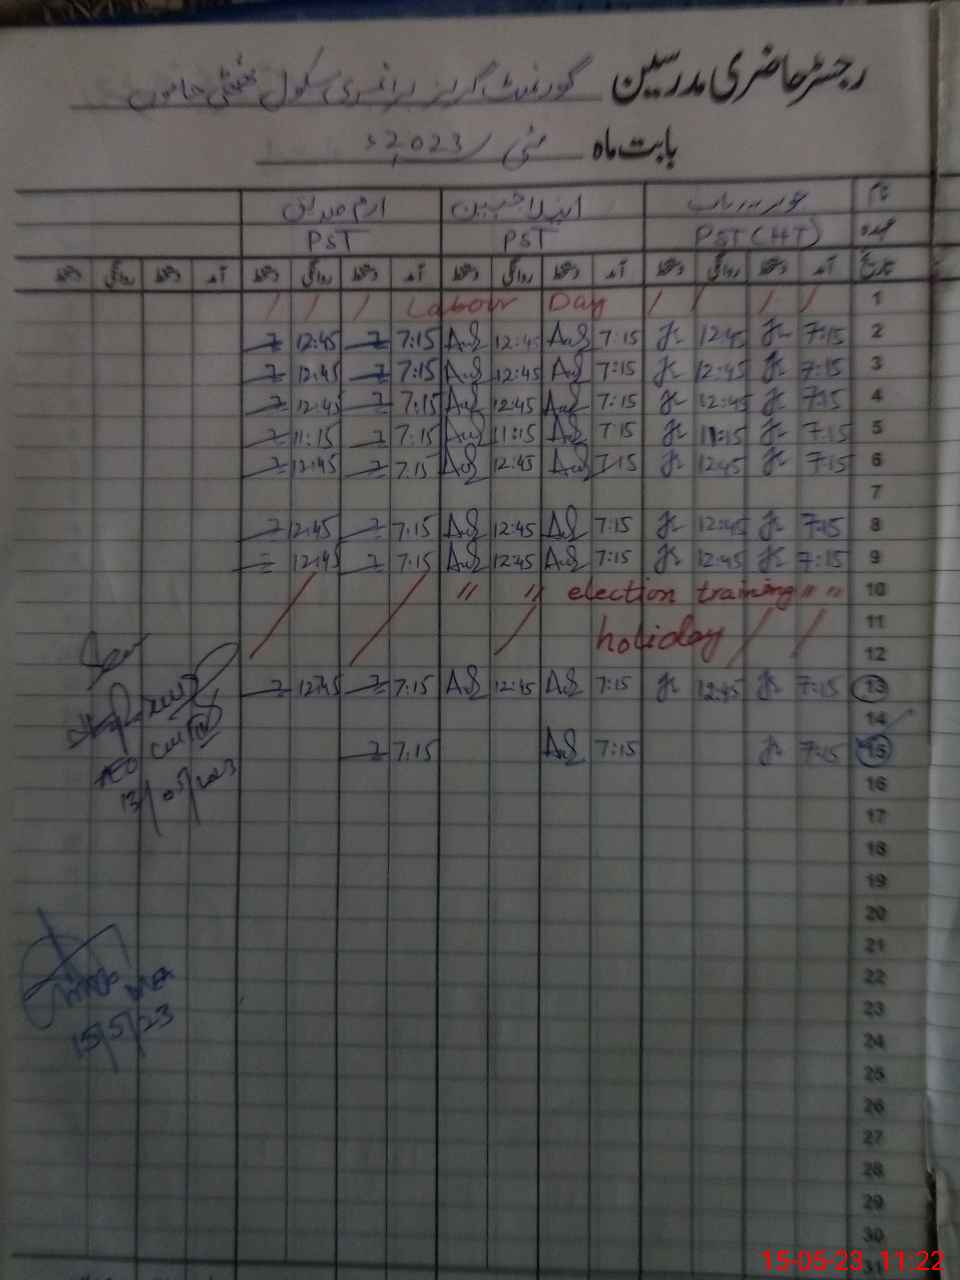 رجسٹر حاضری مدرسین گورنمنٹ گرلز پرائمری سکول
بابت ماہ مئی 2023ء
نام
عہدہ PST (HT) PST PST
تاریخ آمد دستخط روانگی دستخط آمد دستخط روانگی دستخط آمد دستخط روانگی دستخط آمد دستخط روانگی دستخط
1 Labour Day
2 7:15 12:45 7:15 12:45 7:15 12:45
3 7:15 12:45 7:15 12:45 7:15 12:45
4 7:15 12:45 7:15 12:45 7:15 12:45
5 7:15 11:15 7:15 11:15 7:15 11:15
6 7:15 12:45 7:15 12:45 7:15 12:45
7
8 7:15 12:45 7:15 12:45 7:15 12:45
9 7:15 12:45 7:15 12:45 7:15 12:45
10 " " election training " "
11 holiday
12
13 7:15 12:45 7:15 12:45 7:15 12:45
14
15 7:15 7:15 7:15
16
17
18
19
20
21
22
23
24
25
26
27
28
29
30
31
AEO
13/05/2023
MEA
15/5/23
15-05-23 11:22